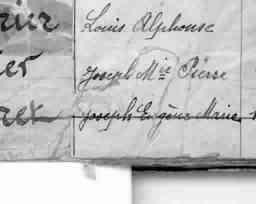 Louis Alphonse
Joseph Mie Pierre
Joseph Eugène Marie